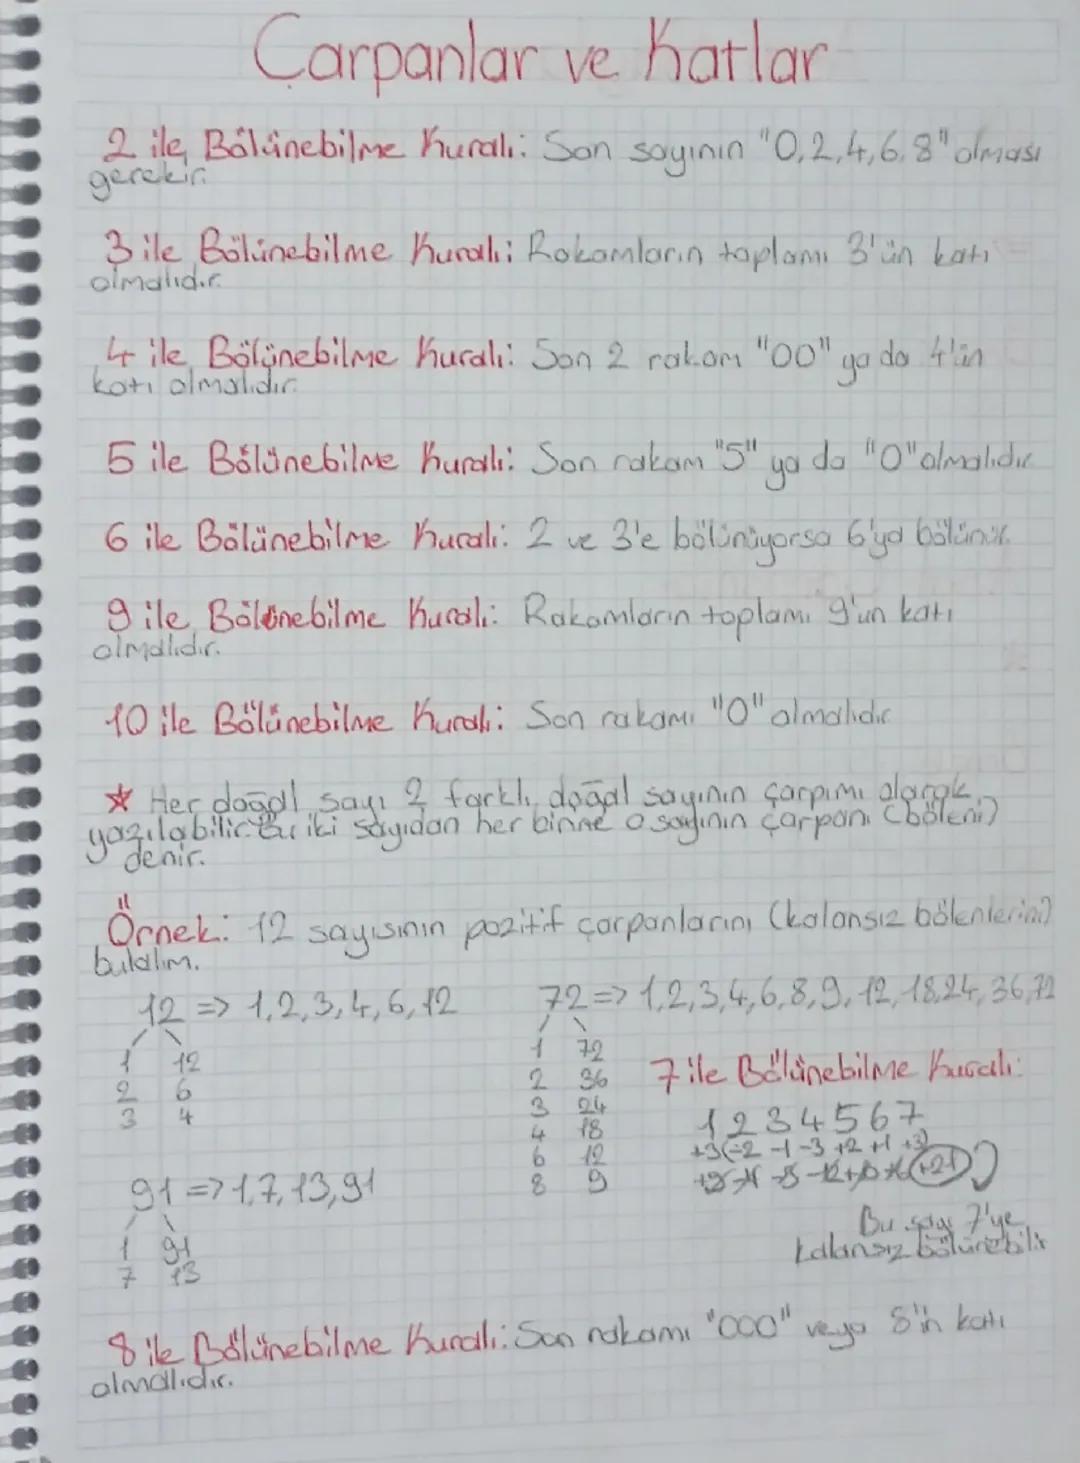 Çarpanlar ve Katlar
2 ile Bölünebilme Kuralı: Son sayının "0,2,4,6,8" olması
gerekir.
3 ile Bölünebilme Kuralı: Rakamların toplamı 3'ün katı
olmalıdır.
4 ile Bölünebilme Kuralı: Son 2 rakam "00" ya da 4'ün
katı olmalıdır.
5 ile Bölünebilme Kuralı: Son rakam "5" ya da "0" olmalıdır
6 ile Bölünebilme Kuralı: 2 ve 3'e bölünüyorsa 6'ya bölünür.
9 ile Bölünebilme Kuralı: Rakamların toplamı 9'un katı
olmalıdır.
10 ile Bölünebilme Kuralı: Son rakamı "0" olmalıdır
☆ Her doğal sayı 2 farklı doğal sayının çarpımı olarak
yazılabilir. Bu iki sayıdan her birine o sayının çarpanı (böleni)
denir.
Örnek: 12 sayısının pozitif çarpanlarını (kalansız bölenlerini)
bulalım.
12 => 1,2,3,4,6,12
1 12
2 6
3 4
72 => 1,2,3,4,6,8,9,12,18,24,36,72
1 72
2 36
3 24
4 18
6 12
8 9
91 => 1,7,13,91
1 91
7 13
7 ile Bölünebilme Kuralı:
1 2 3 4 5 6 7
-2 -1 -3 +2 +1 +3
+21
Bu sayı 7'ye
kalansız bölünebilir
8 ile Bölünebilme Kuralı: Son rakamı "000" veya 8'in katı
olmalıdır.